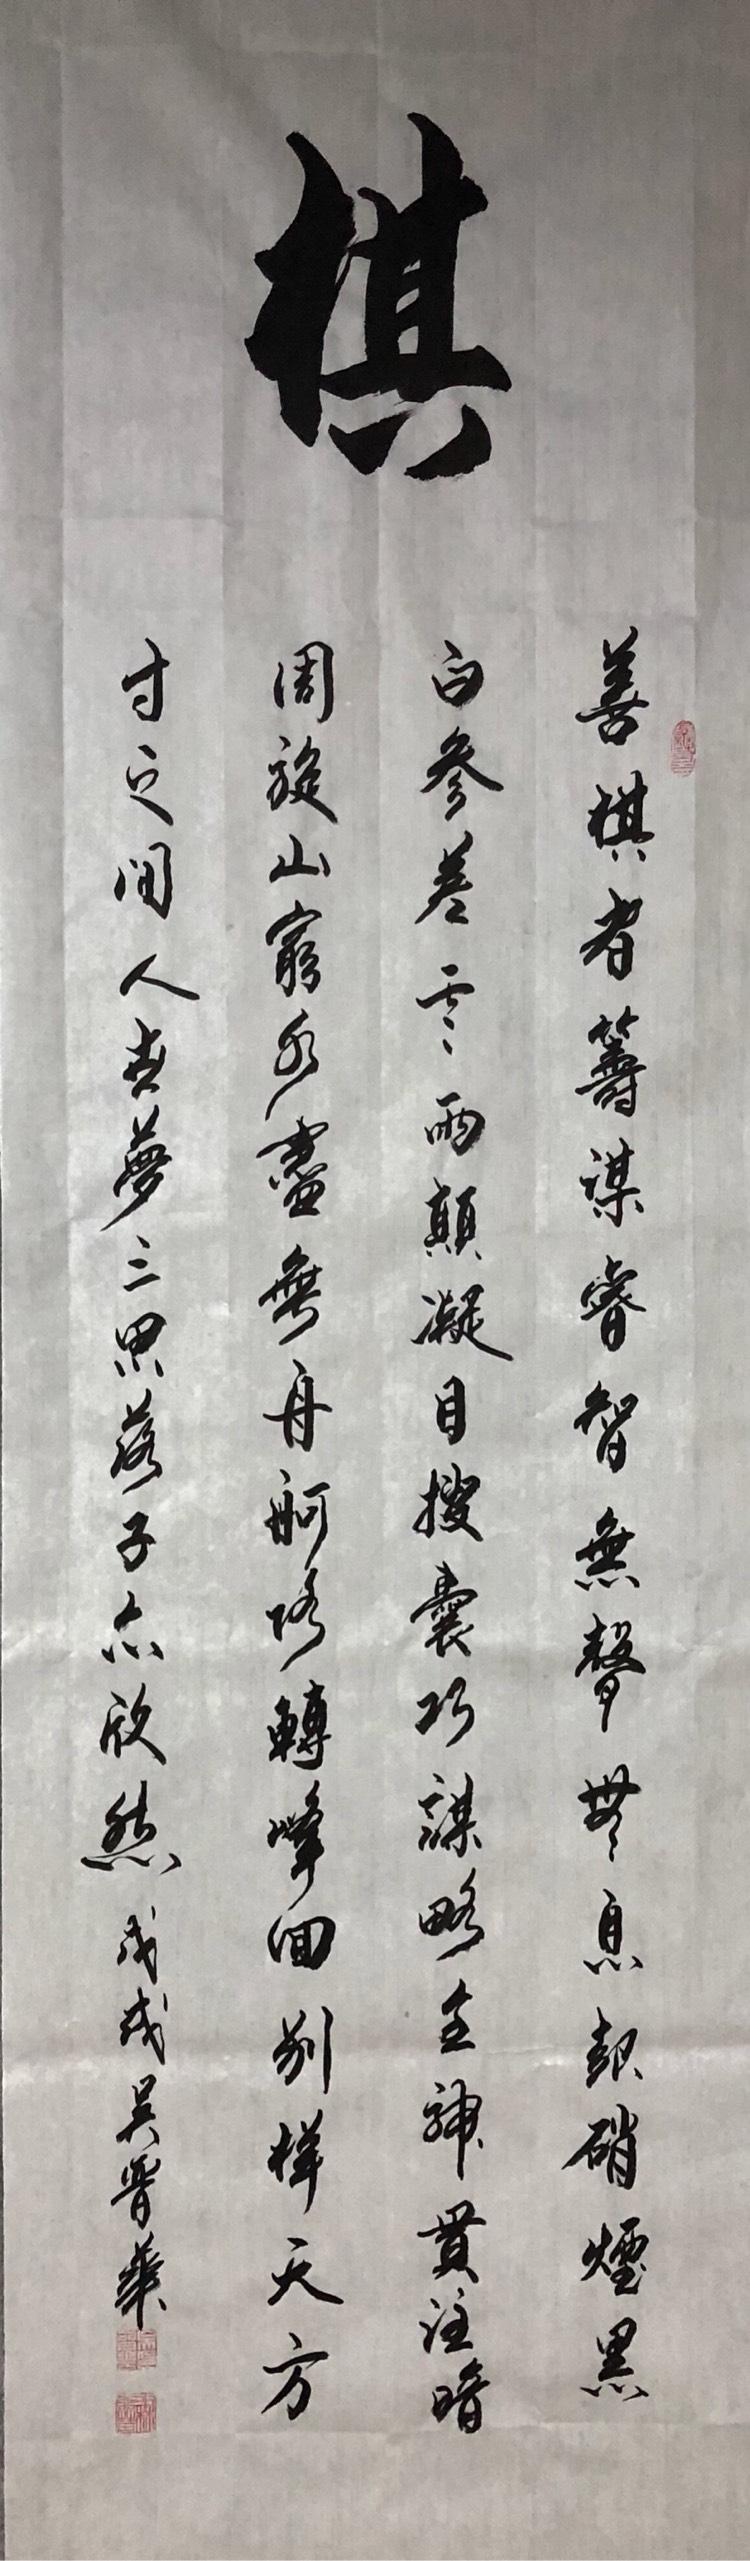 棋
善棋者籌謀睿智無聲無息起硝煙黑
白參差雲雨顛凝目搜囊巧謀略全神貫注暗
周旋山窮水盡無舟舸路轉峰回別樣天方
寸之間人生夢三思落子亦欣然
戊戌吳晉華